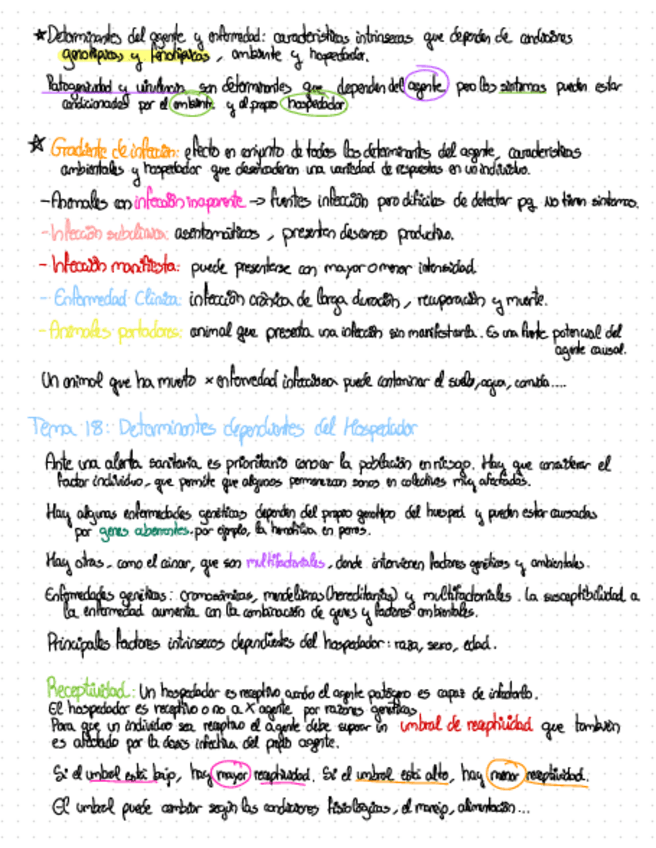 ★ Determinantes del agente y enfermedad: características intrínsecas que dependen de condiciones
genotípicas y fenotípicas, ambiente y hospedador.
Patogenicidad y virulencia son determinantes que dependen del agente pero los síntomas pueden estar
condicionados por el ambiente y el propio hospedador
★ Gradiente de infección: efecto en conjunto de todos los determinantes del agente, características
ambientales y hospedador que desencadenan una variedad de respuestas en un individuo.
- Animales con infección inaparente -> fuentes infección pero difíciles de detectar pq no tienen síntomas.
- Infección subclínica: asentomáticos, presentan descenso productivo.
- Infección manifiesta: puede presentarse con mayor o menor intensidad.
- Enfermedad Clínica: infección crónica de larga duración, recuperación y muerte.
- Animales portadores: animal que presenta una infección sin manifestarla. Es una fuente potencial del
agente causal.
Un animal que ha muerto x enfermedad infecciosa puede contaminar el suelo, agua, comida....
Tema 18: Determinantes dependientes del Hospedador
Ante una alerta sanitaria es prioritario conocer la población en riesgo. Hay que considerar el
factor individuo, que permite que algunos permanezcan sanos en colectivos muy afectados.
Hay algunas enfermedades genéticas dependen del propio genotipo del huesped y pueden estar causadas
por genes aberrantes. por ejemplo, la hemofilia en perros.
Hay otras, como el cáncer, que son multifactoriales, donde intervienen factores genéticos y ambientales.
Enfermedades genéticas: cromosómicas, mendelianas (hereditarias) y multifactoriales. La susceptibilidad a
la enfermedad aumenta con la combinación de genes y factores ambientales.
Principales factores intrínsecos dependientes del hospedador: raza, sexo, edad.
Receptividad: Un hospedador es receptivo cuando el agente patógeno es capaz de infectarlo.
El hospedador es receptivo o no a x agente por razones genéticas
Para que un individuo sea receptivo el agente debe superar un umbral de receptividad que también
es afectado por la dosis infectiva del propio agente.
Si el umbral está bajo, hay mayor receptividad. Si el umbral está alto, hay menor receptividad.
El umbral puede cambiar según las condiciones fisiológicas, el manejo, alimentación...